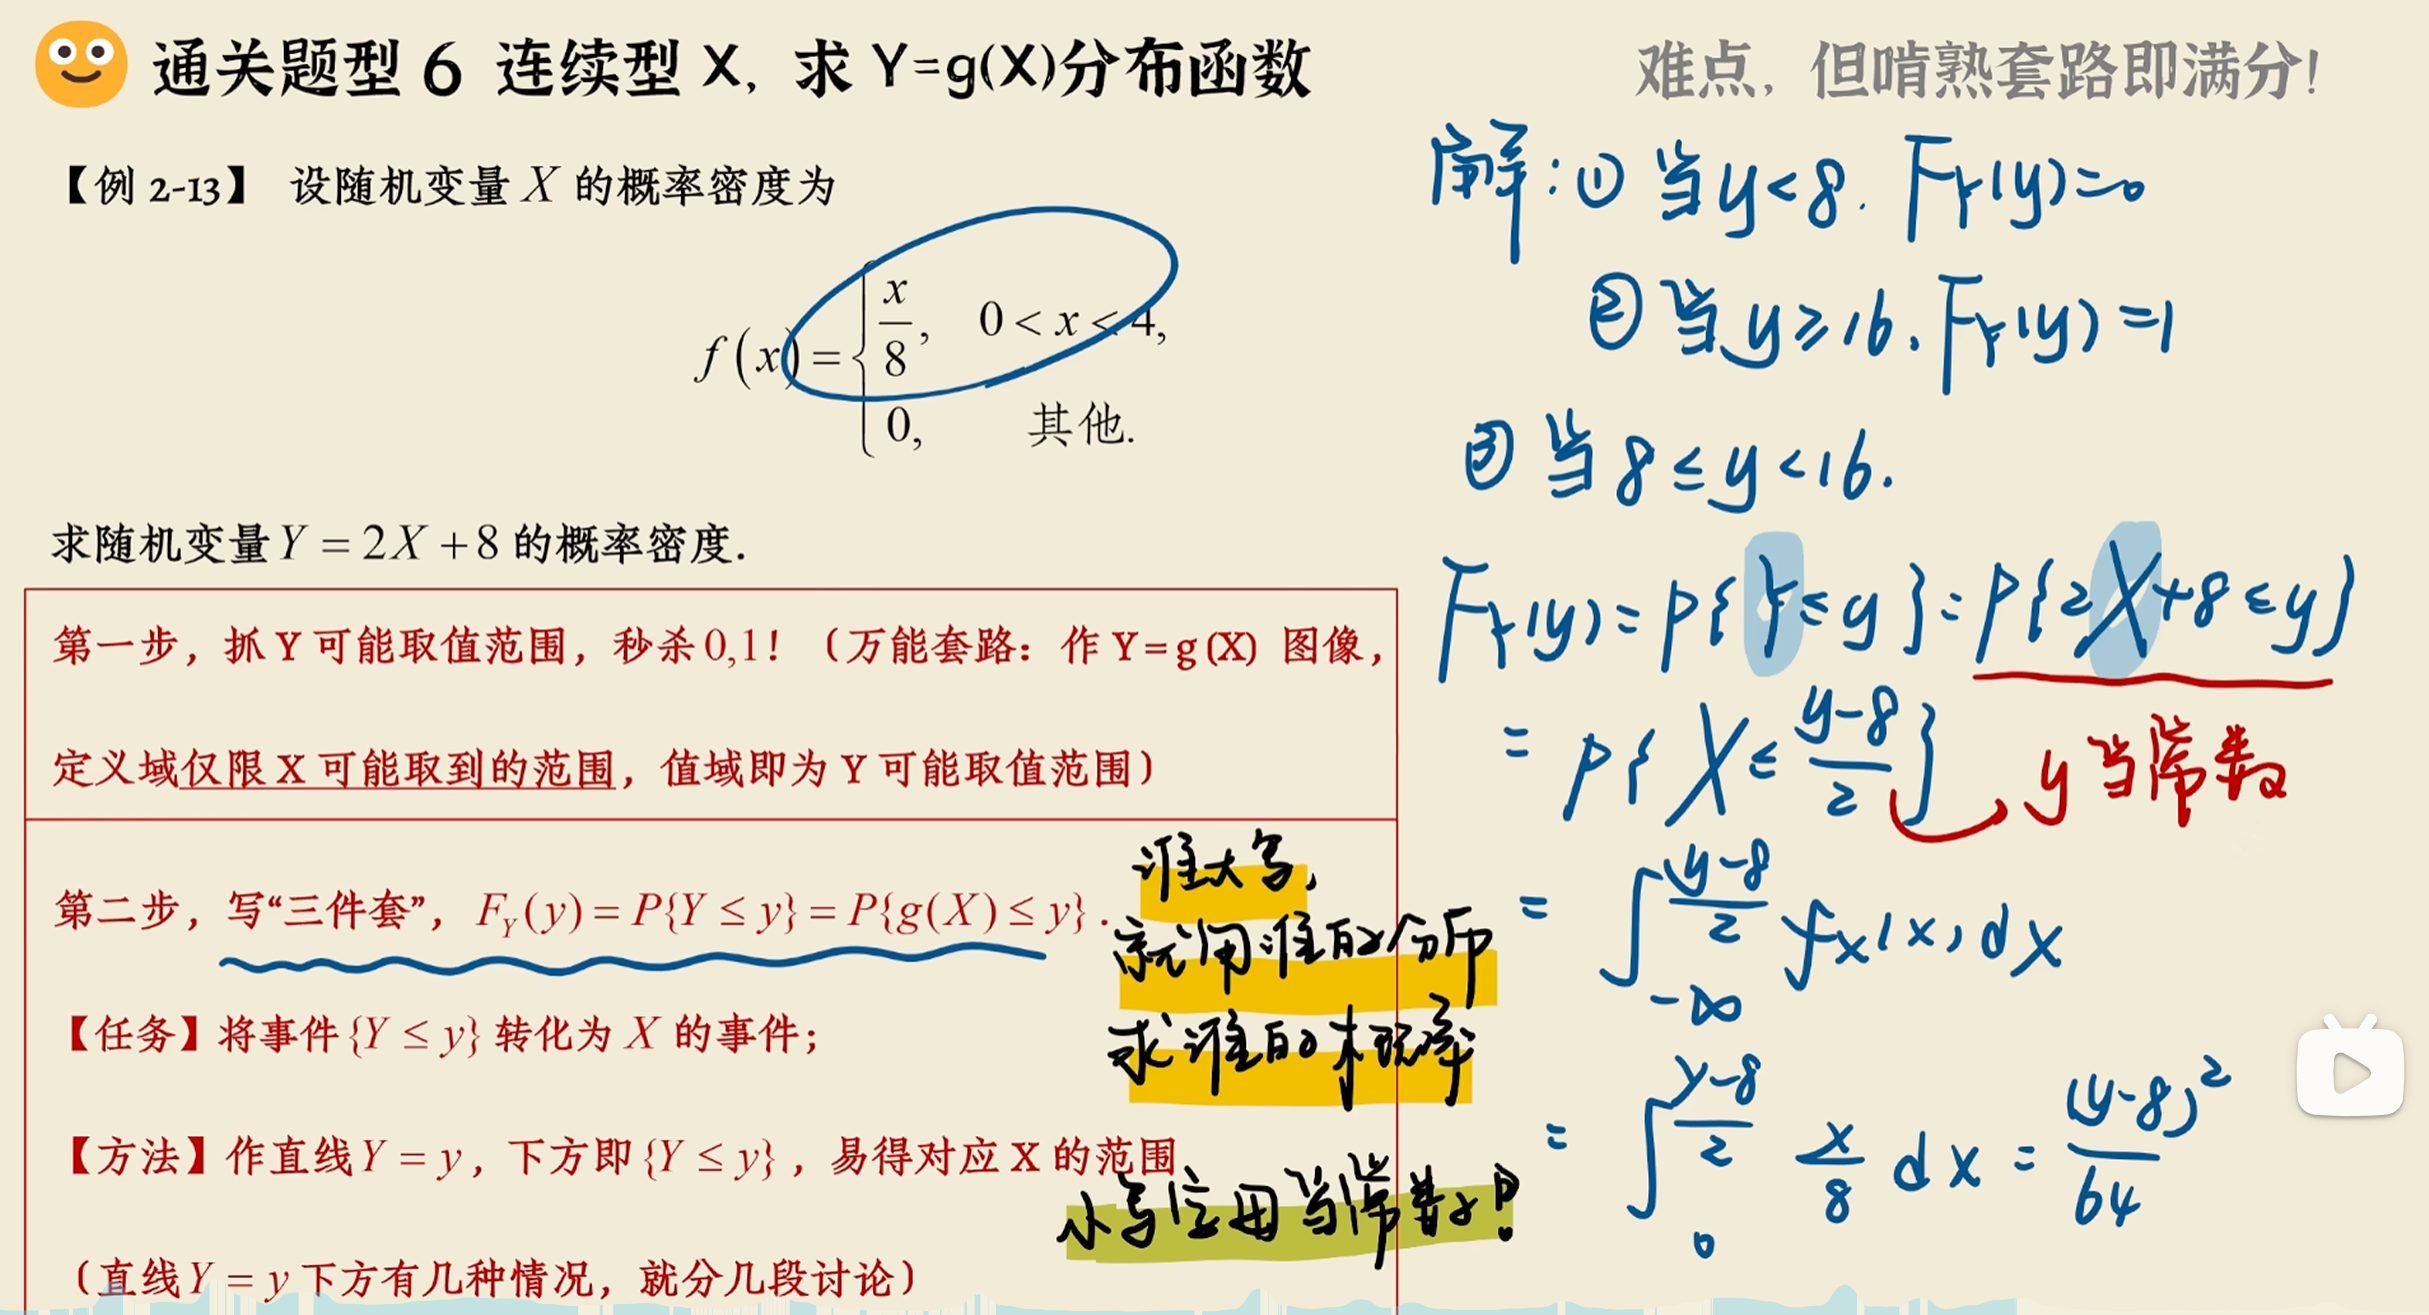 通关题型 6 连续型 X, 求 Y=g(X)分布函数
难点, 但啃熟套路即满分!
【例 2-13】 设随机变量 X 的概率密度为
f(x) = { x/8, 0 < x < 4,
0, 其他.
求随机变量 Y = 2X + 8 的概率密度.
第一步, 抓 Y 可能取值范围, 秒杀 0,1! (万能套路: 作 Y=g(X) 图像,
定义域仅限 X 可能取到的范围, 值域即为 Y 可能取值范围)
第二步, 写“三件套”, F_Y(y) = P{Y ≤ y} = P{g(X) ≤ y}.
【任务】将事件{Y ≤ y} 转化为 X 的事件;
【方法】作直线 Y = y, 下方即{Y ≤ y}, 易得对应 X 的范围
(直线 Y = y 下方有几种情况, 就分几段讨论)
谁大写,
就用谁的分布
求谁的概率
小写应用当常数!
解: ① 当 y<8. F_Y(y)=0
② 当 y≥16. F_Y(y)=1
③ 当 8≤y<16.
F_Y(y)=P{Y≤y}=P{2X+8≤y}
= P{X≤(y-8)/2} y当常数
= ∫_{-∞}^{(y-8)/2} f_X(x)dx
= ∫_0^{(y-8)/2} x/8 dx = (y-8)²/64